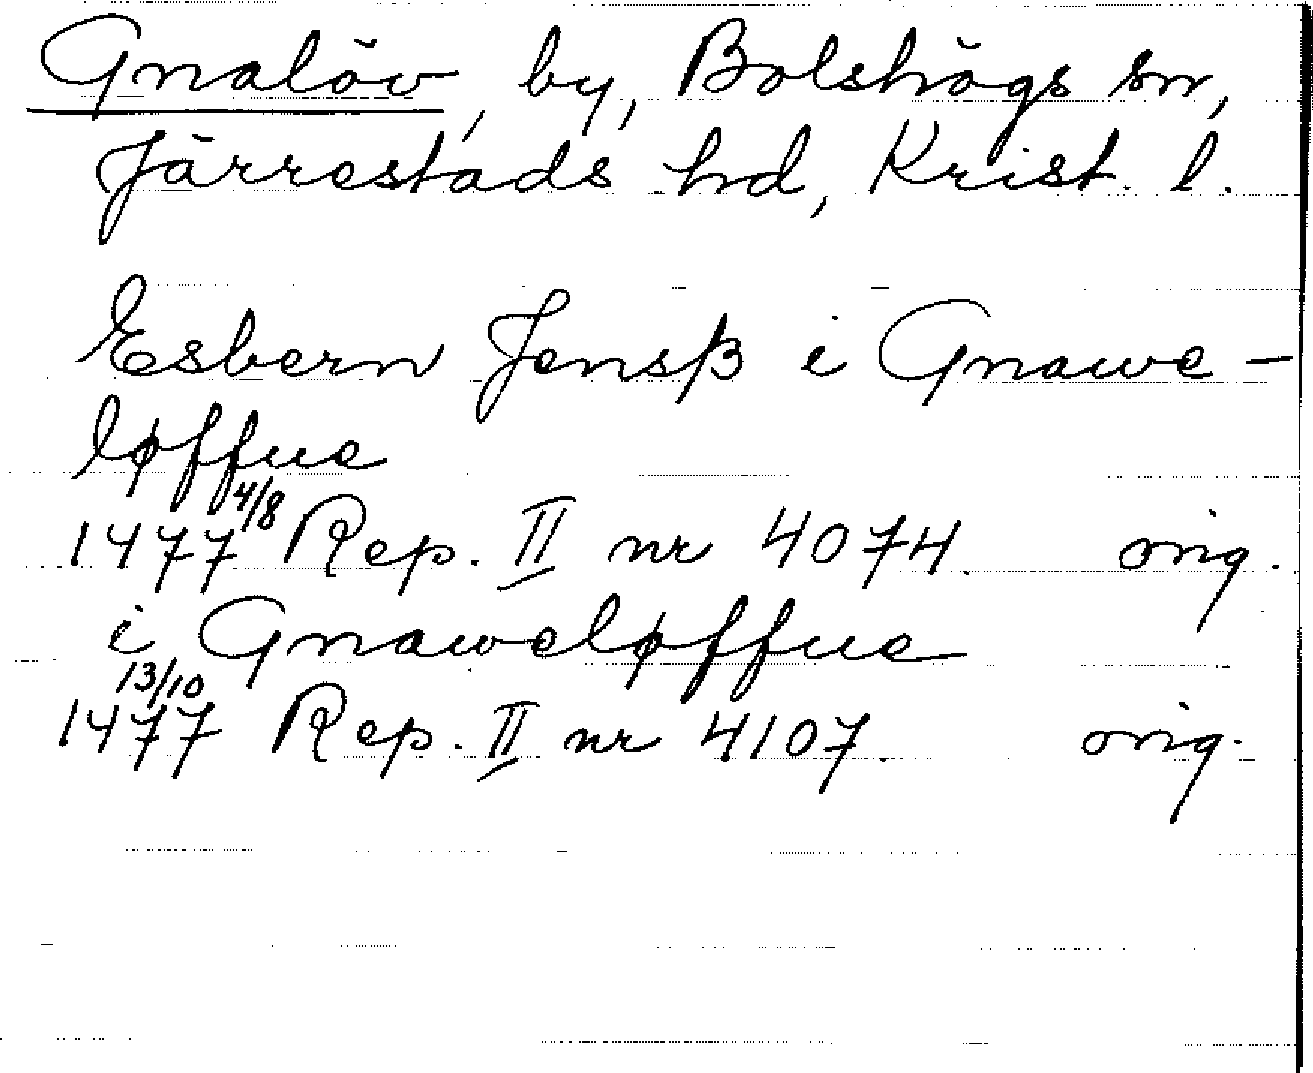 Gnalöv, by, Bolshögs sn,
Järrestads hd, Krist. l.
Esbern Jensß i Gnawe-
løffue
1477 4/8 Rep. II nr 4074. orig.
i Gnaweløffue
1477 13/10 Rep. II nr 4107. orig.